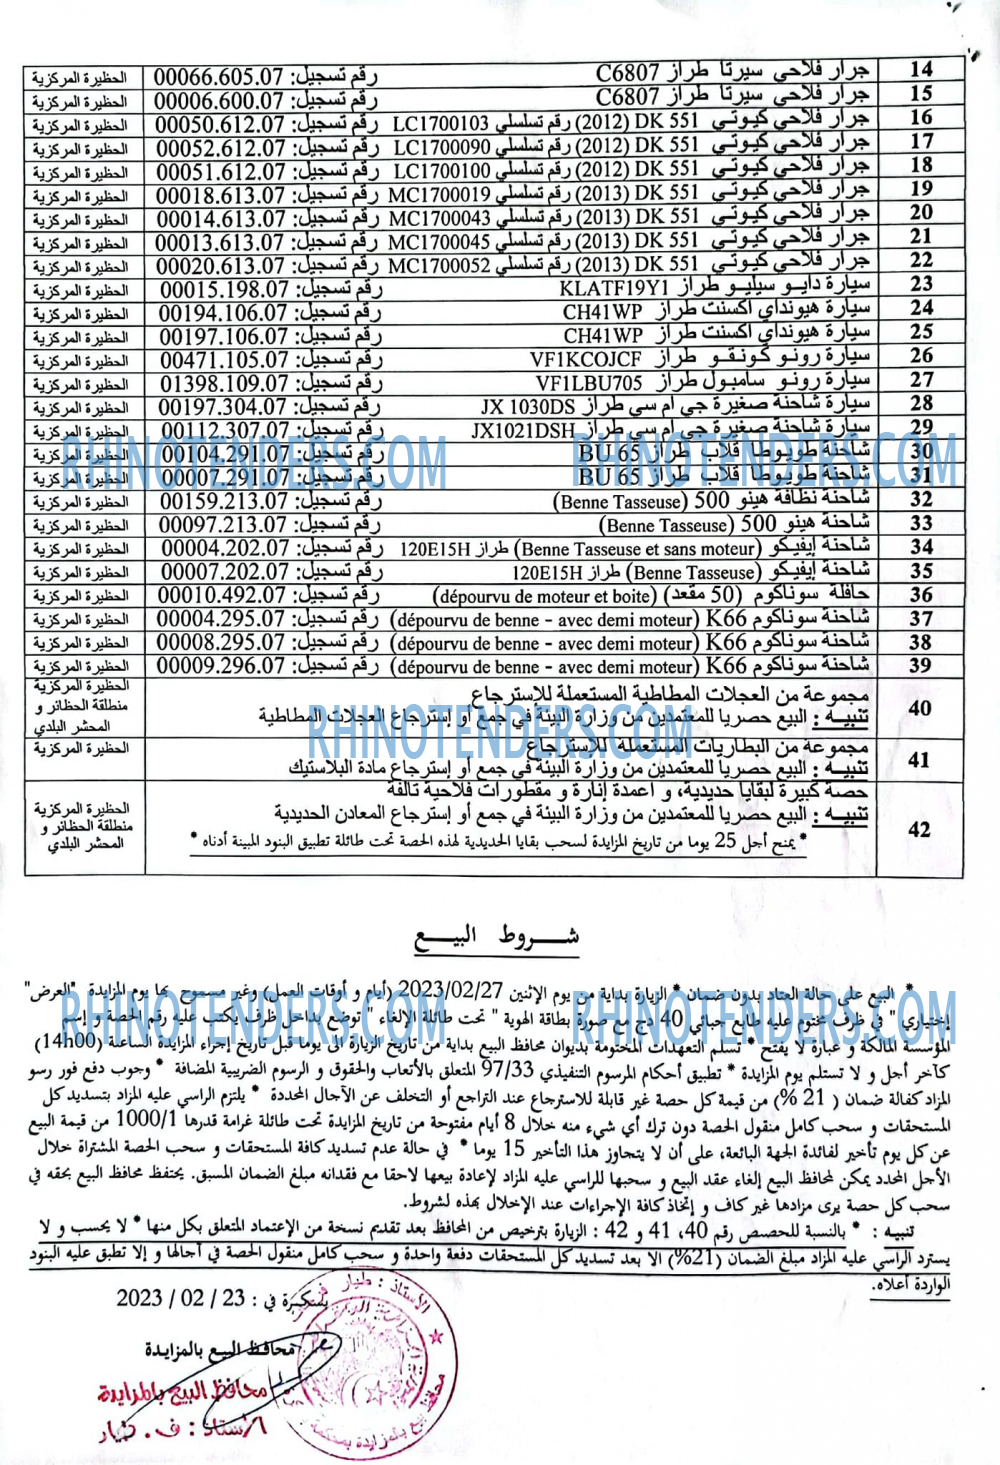 14 جرار فلاحي سيرتا طراز C6807 رقم تسجيل: 00066.605.07 الحظيرة المركزية
15 جرار فلاحي سيرتا طراز C6807 رقم تسجيل: 00006.600.07 الحظيرة المركزية
16 جرار فلاحي كيوتي DK 551 (2012) رقم تسلسلي LC1700103 رقم تسجيل: 00050.612.07 الحظيرة المركزية
17 جرار فلاحي كيوتي DK 551 (2012) رقم تسلسلي LC1700090 رقم تسجيل: 00052.612.07 الحظيرة المركزية
18 جرار فلاحي كيوتي DK 551 (2012) رقم تسلسلي LC1700100 رقم تسجيل: 00051.612.07 الحظيرة المركزية
19 جرار فلاحي كيوتي DK 551 (2013) رقم تسلسلي MC1700019 رقم تسجيل: 00018.613.07 الحظيرة المركزية
20 جرار فلاحي كيوتي DK 551 (2013) رقم تسلسلي MC1700043 رقم تسجيل: 00014.613.07 الحظيرة المركزية
21 جرار فلاحي كيوتي DK 551 (2013) رقم تسلسلي MC1700045 رقم تسجيل: 00013.613.07 الحظيرة المركزية
22 جرار فلاحي كيوتي DK 551 (2013) رقم تسلسلي MC1700052 رقم تسجيل: 00020.613.07 الحظيرة المركزية
23 سيارة دايو سيليو طراز KLATF19Y1 رقم تسجيل: 00015.198.07 الحظيرة المركزية
24 سيارة هيونداي اكسنت طراز CH41WP رقم تسجيل: 00194.106.07 الحظيرة المركزية
25 سيارة هيونداي اكسنت طراز CH41WP رقم تسجيل: 00197.106.07 الحظيرة المركزية
26 سيارة رونو كونقو طراز VF1KCOJCF رقم تسجيل: 00471.105.07 الحظيرة المركزية
27 سيارة رونو سامبول طراز VF1LBU705 رقم تسجيل: 01398.109.07 الحظيرة المركزية
28 سيارة شاحنة صغيرة جي ام سي طراز JX 1030DS رقم تسجيل: 00197.304.07 الحظيرة المركزية
29 سيارة شاحنة صغيرة جي ام سي طراز JX1021DSH رقم تسجيل: 00112.307.07 الحظيرة المركزية
30 شاحنة طويوطا قلاب طراز BU 65 رقم تسجيل: 00104.291.07 الحظيرة المركزية
RHINOTENDERS.COM RHINOTENDERS.COM
31 شاحنة طويوطا قلاب طراز BU 65 رقم تسجيل: 00007.291.07 الحظيرة المركزية
32 شاحنة نظافة هينو 500 (Benne Tasseuse) رقم تسجيل: 00159.213.07 الحظيرة المركزية
33 شاحنة هينو 500 (Benne Tasseuse) رقم تسجيل: 00097.213.07 الحظيرة المركزية
34 شاحنة إيفيكو (Benne Tasseuse et sans moteur) طراز 120E15H رقم تسجيل: 00004.202.07 الحظيرة المركزية
35 شاحنة إيفيكو (Benne Tasseuse) طراز 120E15H رقم تسجيل: 00007.202.07 الحظيرة المركزية
36 حافلة سوناكوم (50 مقعد) (dépourvu de moteur et boite) رقم تسجيل: 00010.492.07 الحظيرة المركزية
37 شاحنة سوناكوم K66 (dépourvu de benne - avec demi moteur) رقم تسجيل: 00004.295.07 الحظيرة المركزية
38 شاحنة سوناكوم K66 (dépourvu de benne - avec demi moteur) رقم تسجيل: 00008.295.07 الحظيرة المركزية
39 شاحنة سوناكوم K66 (dépourvu de benne - avec demi moteur) رقم تسجيل: 00009.296.07 الحظيرة المركزية
40 مجموعة من العجلات المطاطية المستعملة للإسترجاع
تنبيه : البيع حصريا للمعتمدين من وزارة البيئة في جمع أو إسترجاع العجلات المطاطية
الحظيرة المركزية
منطقة الحظائر و
المحشر البلدي
RHINOTENDERS.COM
41 مجموعة من البطاريات المستعملة للإسترجاع
تنبيه : البيع حصريا للمعتمدين من وزارة البيئة في جمع أو إسترجاع مادة البلاستيك
الحظيرة المركزية
42 حصة كبيرة لبقايا حديدية، و أعمدة إنارة و مقطورات فلاحية تالفة
تنبيه : البيع حصريا للمعتمدين من وزارة البيئة في جمع أو إسترجاع المعادن الحديدية
* يمنح أجل 25 يوما من تاريخ المزايدة لسحب بقايا الحديدية لهذه الحصة تحت طائلة تطبيق البنود المبينة أدناه *
الحظيرة المركزية
منطقة الحظائر و
المحشر البلدي
شروط البيع
* البيع على حالة العتاد بدون ضمان * الزيارة بداية من يوم الإثنين 2023/02/27 (أيام و أوقات العمل) وغير مسموح بها يوم المزايدة "العرض"
RHINOTENDERS.COM RHINOTENDERS.COM
إختياري " في ظرف مختوم عليه طابع جبائي 40 دج مع صورة بطاقة الهوية " تحت طائلة الإلغاء " توضع بداخل ظرف يكتب عليه رقم الحصة و إسم
المؤسسة المالكة و عبارة لا يفتح * تسلم التعهدات المختومة بديوان محافظ البيع بداية من تاريخ الزيارة الى يوما قبل تاريخ إجراء المزايدة الساعة (14h00)
كآخر أجل و لا تستلم يوم المزايدة * تطبيق أحكام المرسوم التنفيذي 97/33 المتعلق بالأتعاب والحقوق و الرسوم الضريبية المضافة * وجوب دفع فور رسو
المزاد كفالة ضمان ( 21 %) من قيمة كل حصة غير قابلة للاسترجاع عند التراجع أو التخلف عن الآجال المحددة * يلتزم الراسي عليه المزاد بتسديد كل
المستحقات و سحب كامل منقول الحصة دون ترك أي شيء منه خلال 8 أيام مفتوحة من تاريخ المزايدة تحت طائلة غرامة قدرها 1000/1 من قيمة البيع
عن كل يوم تأخير لفائدة الجهة البائعة، على أن لا يتجاوز هذا التأخير 15 يوما * في حالة عدم تسديد كافة المستحقات و سحب الحصة المشتراة خلال
الأجل المحدد يمكن لمحافظ البيع إلغاء عقد البيع و سحبها للراسي عليه المزاد لإعادة بيعها لاحقا مع فقدانه مبلغ الضمان المسبق. يحتفظ محافظ البيع بحقه في
سحب كل حصة يرى مزادها غير كاف و إتخاذ كافة الإجراءات عند الإخلال بهذه لشروط.
تنبيه : * بالنسبة للحصص رقم 40، 41 و 42 : الزيارة بترخيص من المحافظ بعد تقديم نسخة من الإعتماد المتعلق بكل منها * لا يحسب و لا
يسترد الراسي عليه المزاد مبلغ الضمان (21%) الا بعد تسديد كل المستحقات دفعة واحدة و سحب كامل منقول الحصة في أجالها و إلا تطبق عليه البنود
الواردة أعلاه.
بسكرة في : 23 / 02 / 2023
محافظ البيع بالمزايدة
محافظ البيع بالمزايدة
الأستاذ : ف. طيار